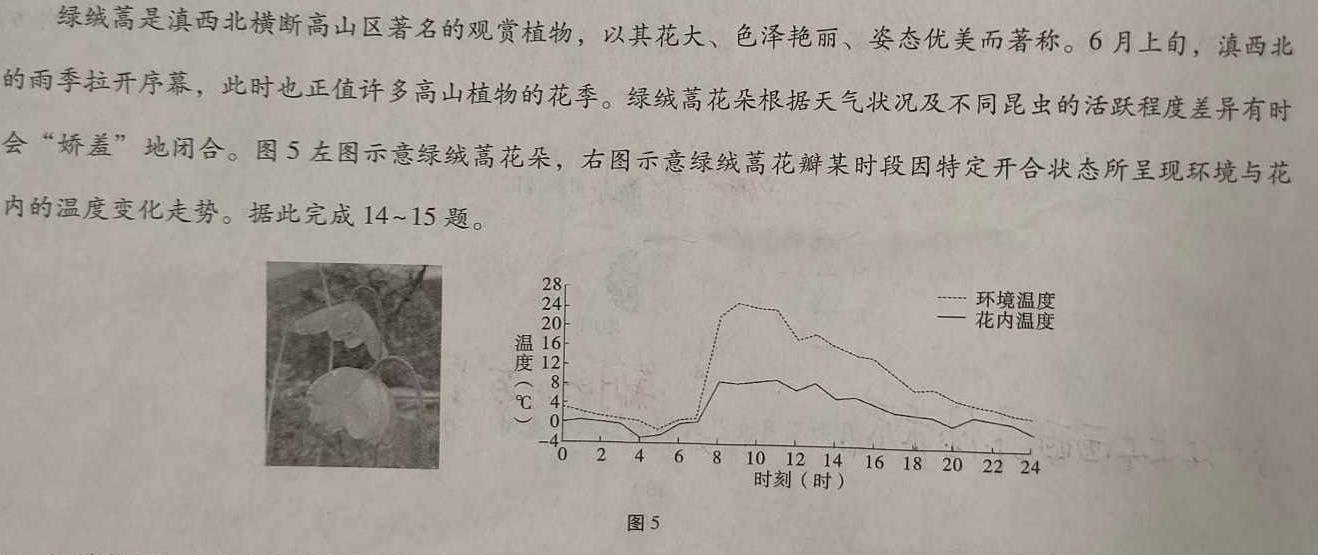 绿绒蒿是滇西北横断高山区著名的观赏植物，以其花大、色泽艳丽、姿态优美而著称。6月上旬，滇西北
的雨季拉开序幕，此时也正值许多高山植物的花季。绿绒蒿花朵根据天气状况及不同昆虫的活跃程度差异有时
会“娇羞”地闭合。图5左图示意绿绒蒿花朵，右图示意绿绒蒿花瓣某时段因特定开合状态所呈现环境与花
内的温度变化走势。据此完成14~15题。
28
24
20
16
12
8
4
0
-4
温度（℃）
环境温度
花内温度
0 2 4 6 8 10 12 14 16 18 20 22 24
时刻（时）
图5